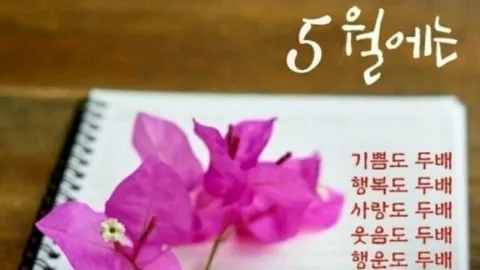 5월에는
기쁨도 두배
행복도 두배
사랑도 두배
웃음도 두배
행운도 두배